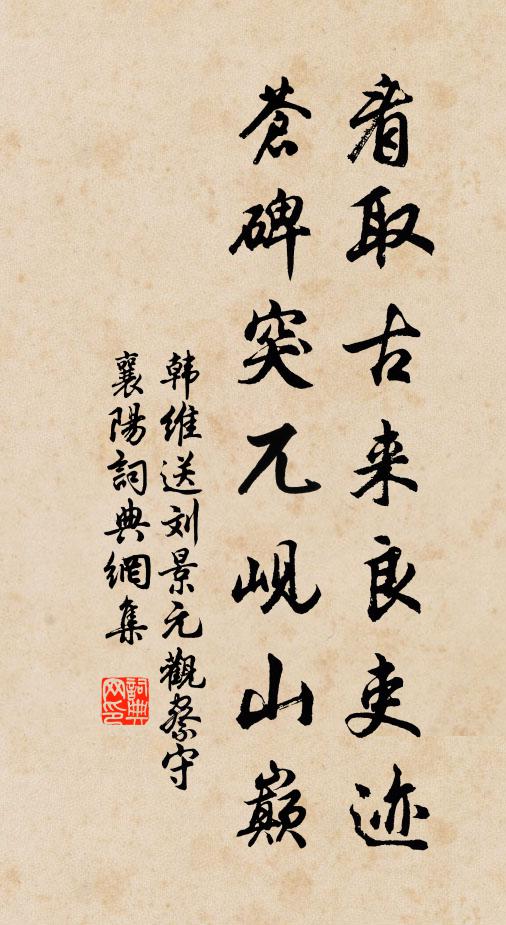 看取古来良吏迹
苍碑突兀岘山巅
韩维送刘景元觀察守
襄陽詞典網集
詞典网印